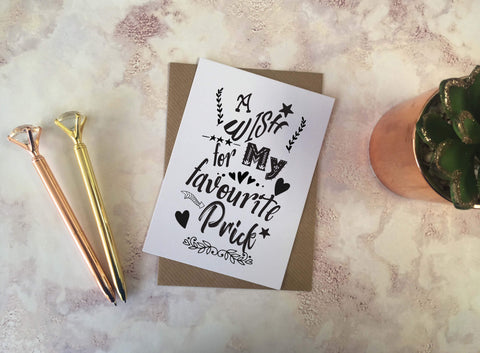 A
Wish
for My
favourite
Prick